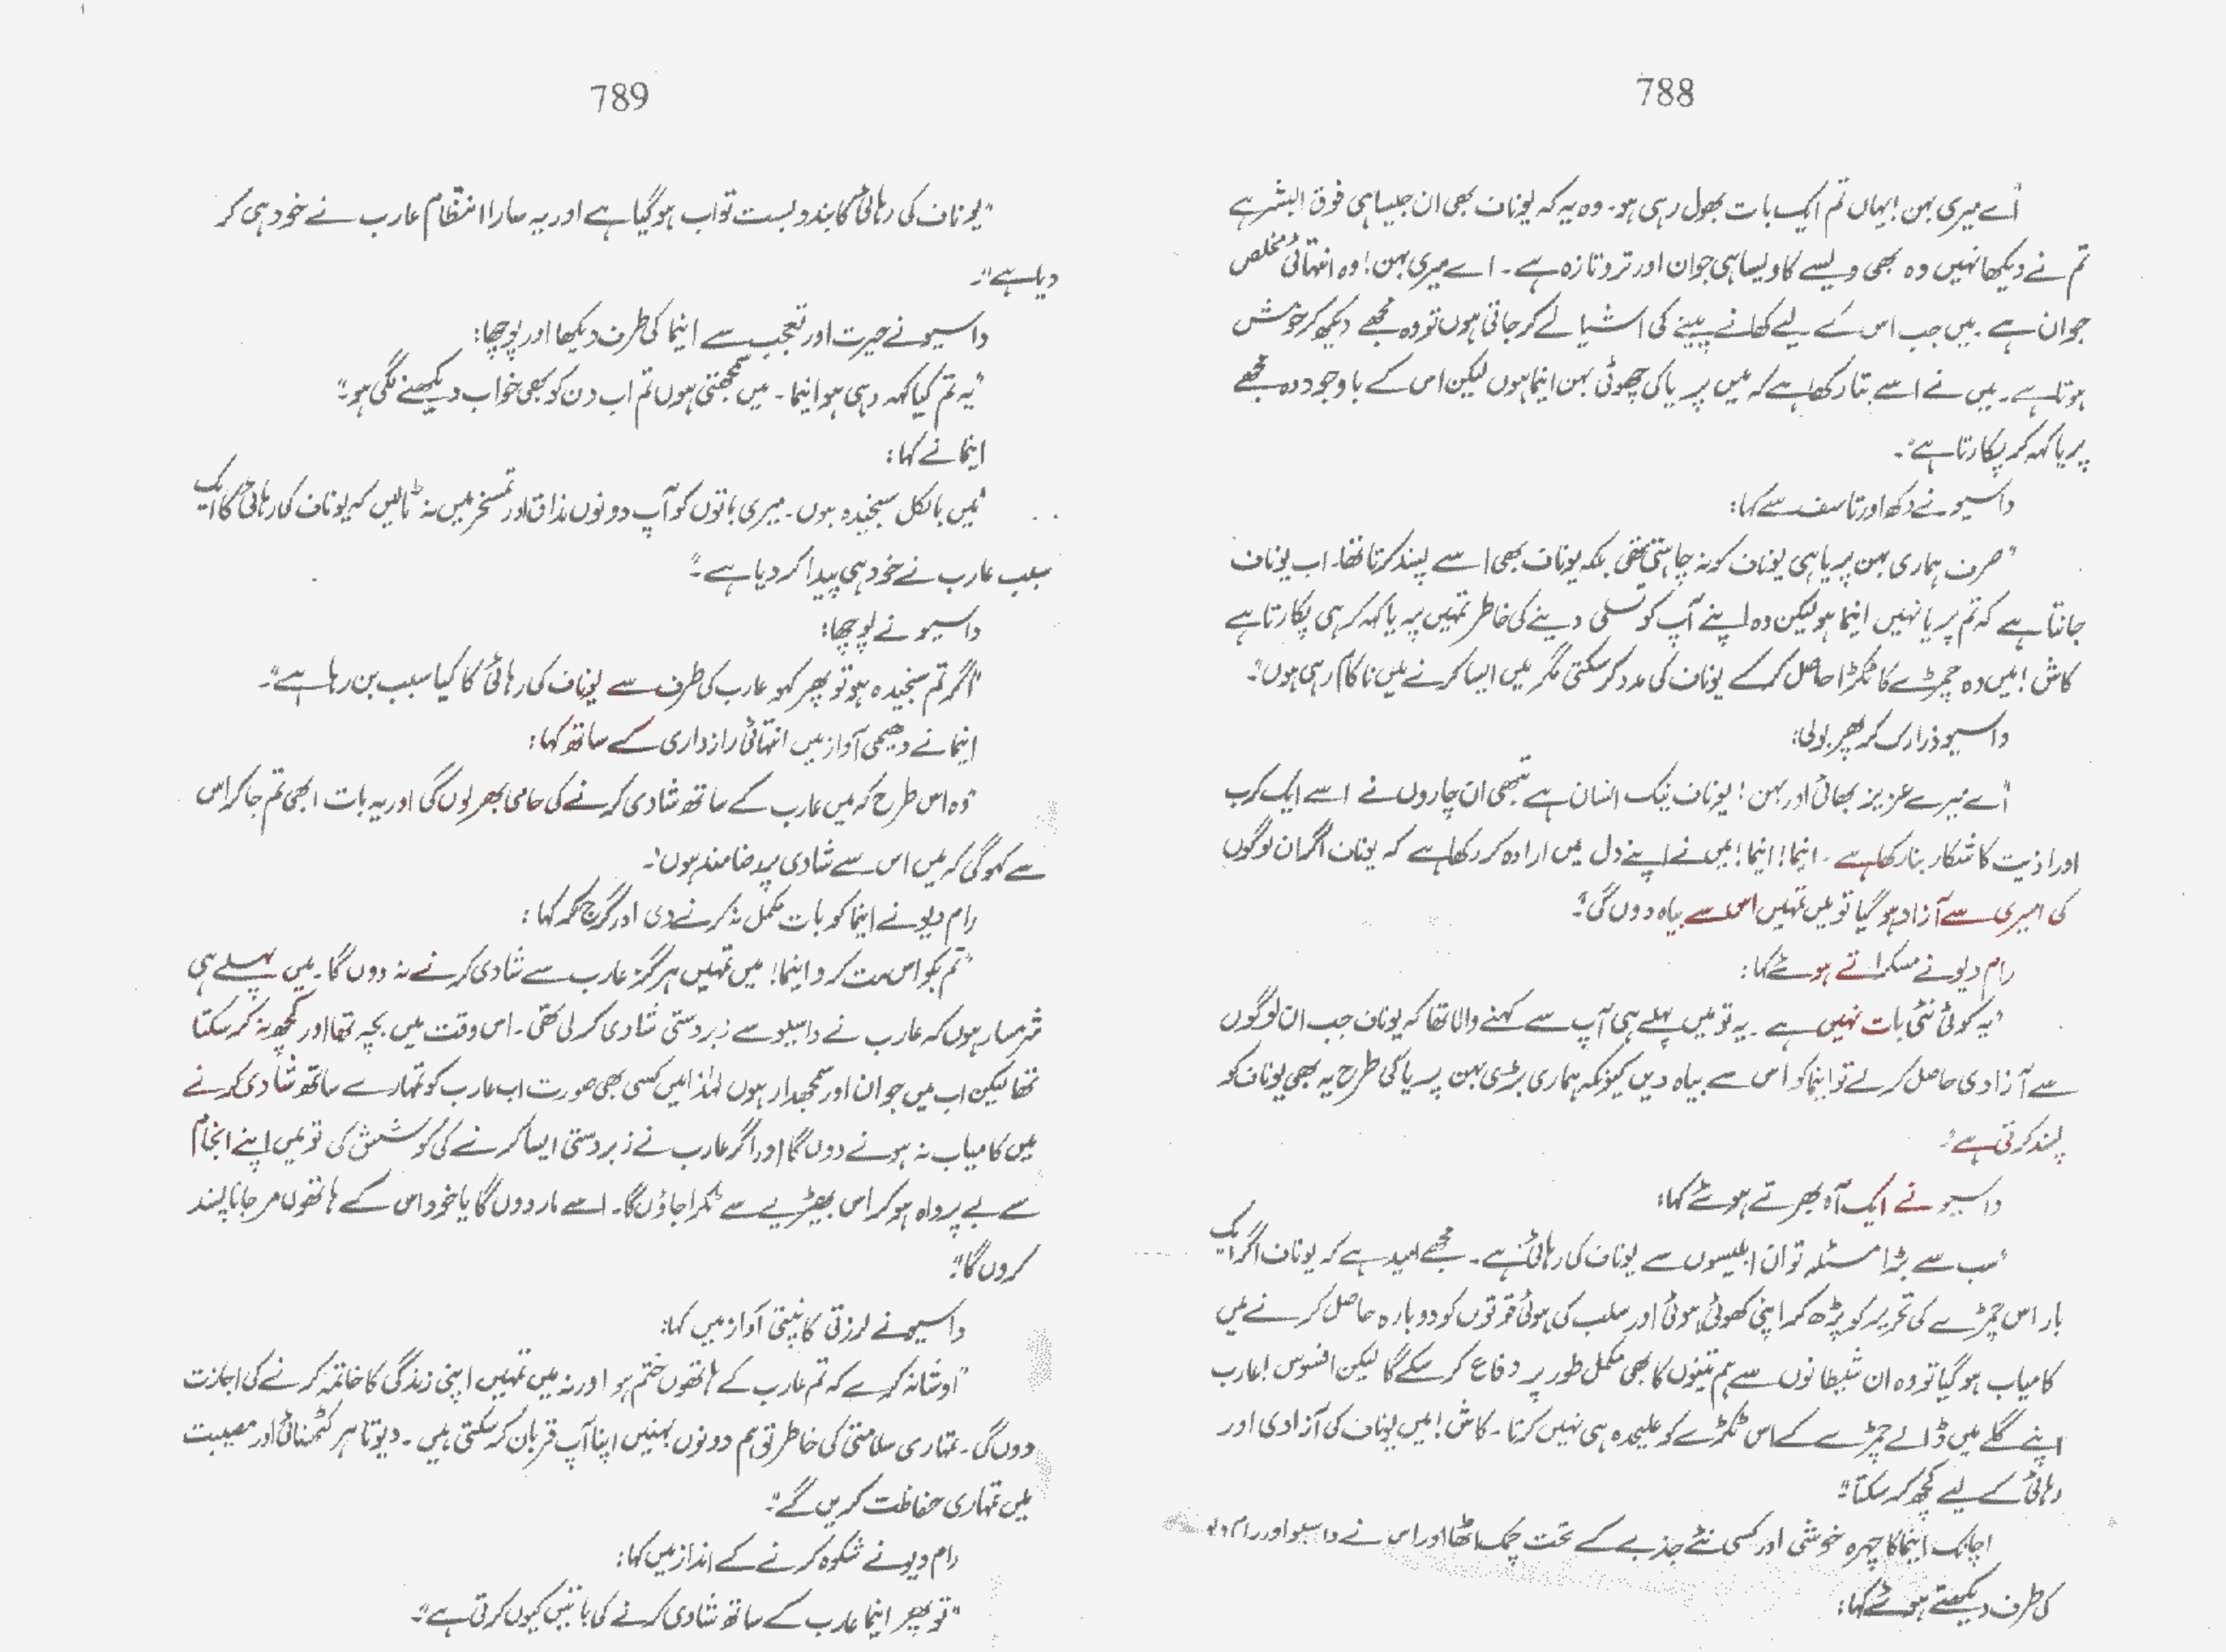 788
"اے میری بہن! یہاں تم ایک بات بھول رہی ہو۔ وہ یہ کہ یوناف بھی ان جیسا ہی فوق البشر ہے
تم نے دیکھا نہیں وہ بھی ویسے کا ویسا ہی جوان اور تر و تازہ ہے۔ اے میری بہن! وہ انتہائی مخلص
جوان ہے۔ میں جب اس کے لیے کھانے پینے کی اشیا لے کر جاتی ہوں تو وہ مجھے دیکھ کر خوش
ہوتا ہے۔ میں نے اسے بتا رکھا ہے کہ میں پریا کی چھوٹی بہن اینما ہوں لیکن اس کے باوجود وہ مجھے
پریا کہہ کر پکارتا ہے"۔
داسیو نے دکھ اور تاسف سے کہا:
"صرف ہماری بہن پریا ہی یوناف کو نہ چاہتی تھی بلکہ یوناف بھی اسے پسند کرتا تھا۔ اب یوناف
جانتا ہے کہ تم پریا نہیں اینما ہو لیکن وہ اپنے آپ کو تسلی دینے کی خاطر تمہیں پریا کہہ کر ہی پکارتا ہے
کاش! میں وہ چمڑے کا ٹکڑا حاصل کر کے یوناف کی مدد کر سکتی مگر میں ایسا کرنے میں ناکام رہی ہوں"۔
داسیو ذرا رک کر پھر بولی:
"اے میرے عزیز بھائی اور بہن! یوناف نیک انسان ہے تبھی ان چاروں نے اسے ایک کرب
اور اذیت کا شکار بنا رکھا ہے۔ اینما! اینما! میں نے اپنے دل میں ارادہ کر رکھا ہے کہ یوناف اگر ان لوگوں
کی اسیری سے آزاد ہو گیا تو میں تمہیں اس سے بیاہ دوں گی"۔
رام دیو نے مسکراتے ہوئے کہا:
"یہ کوئی نئی بات نہیں ہے۔ یہ تو میں پہلے ہی آپ سے کہنے والا تھا کہ یوناف جب ان لوگوں
سے آزادی حاصل کر لے تو اینما کو اس سے بیاہ دیں کیونکہ ہماری بڑی بہن پریا کی طرح یہ بھی یوناف کو
پسند کرتی ہے"۔
داسیو نے ایک آہ بھرتے ہوئے کہا:
"سب سے بڑا مسئلہ تو ان ابلیسوں سے یوناف کی رہائی ہے۔ مجھے امید ہے کہ یوناف اگر ایک
بار اس چمڑے کی تحریر کو پڑھ کر اپنی کھوئی ہوئی اور سلب کی ہوئی قوتوں کو دوبارہ حاصل کرنے میں
کامیاب ہو گیا تو وہ ان شیطانوں سے ہم تینوں کا بھی مکمل طور پر دفاع کر سکے گا لیکن افسوس! عارب
اپنے گلے میں ڈالے چمڑے کے اس ٹکڑے کو علیحدہ ہی نہیں کرتا۔ کاش! میں یوناف کی آزادی اور
رہائی کے لیے کچھ کر سکتا"۔
اچانک اینما کا چہرہ خوشی اور کسی نئے جذبے کے تحت چمک اٹھا اور اس نے داسیو اور رام دیو
کی طرف دیکھتے ہوئے کہا:
789
"یوناف کی رہائی کا بندوبست تو اب ہو گیا ہے اور یہ سارا انتظام عارب نے خود ہی کر
دیا ہے"۔
داسیو نے حیرت اور تعجب سے اینما کی طرف دیکھا اور پوچھا:
"یہ تم کیا کہہ رہی ہو اینما۔ میں سمجھتی ہوں تم اب دن کو بھی خواب دیکھنے لگی ہو"۔
اینما نے کہا:
"میں بالکل سنجیدہ ہوں۔ میری باتوں کو آپ دونوں مذاق اور تمسخر میں نہ ٹالیں کہ یوناف کی رہائی کا ایک
سبب عارب نے خود ہی پیدا کر دیا ہے"۔
داسیو نے پوچھا:
"اگر تم سنجیدہ ہو تو پھر کہو عارب کی طرف سے یوناف کی رہائی کا کیا سبب بن رہا ہے"۔
اینما نے دھیمی آواز میں انتہائی رازداری کے ساتھ کہا:
"وہ اس طرح کہ میں عارب کے ساتھ شادی کرنے کی حامی بھر لوں گی اور یہ بات ابھی تم جا کر اس
سے کہو گی کہ میں اس سے شادی پر رضامند ہوں"۔
رام دیو نے اینما کو بات مکمل نہ کرنے دی اور گرج کر کہا:
"تم بکواس مت کرو اینما! میں تمہیں ہرگز عارب سے شادی کرنے نہ دوں گا۔ میں پہلے ہی
شرمسار ہوں کہ عارب نے داسیو سے زبردستی شادی کر لی تھی۔ اس وقت میں بچہ تھا اور کچھ نہ کر سکتا
تھا لیکن اب میں جوان اور سمجھدار ہوں لہٰذا میں کسی بھی صورت اب عارب کو تمہارے ساتھ شادی کرنے
میں کامیاب نہ ہونے دوں گا اور اگر عارب نے زبردستی ایسا کرنے کی کوشش کی تو میں اپنے انجام
سے بے پرواہ ہو کر اس بھیڑیے سے ٹکرا جاؤں گا۔ اسے مار دوں گا یا خود اس کے ہاتھوں مر جانا پسند
کروں گا"۔
داسیو نے لرزتی کانپتی آواز میں کہا:
"اوشا نہ کرے کہ تم عارب کے ہاتھوں ختم ہو اور نہ میں تمہیں اپنی زندگی کا خاتمہ کرنے کی اجازت
دوں گی۔ تمہاری سلامتی کی خاطر تو ہم دونوں بہنیں اپنا آپ قربان کر سکتی ہیں۔ دیوتا ہر کٹھنائی اور مصیبت
میں تمہاری حفاظت کریں گے"۔
رام دیو نے شکوہ کرنے کے انداز میں کہا:
"تو پھر اینما عارب کے ساتھ شادی کرنے کی باتیں کیوں کرتی ہے"۔